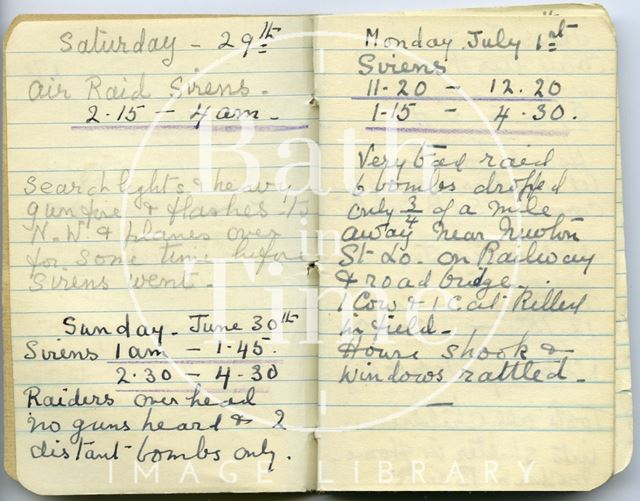 Saturday - 29th
Air Raid Sirens.
2.15 - 4 am.
Searchlights & heavy
gun fire & flashes to
N.W & planes over
for some time before
Sirens went.
Sunday. June 30th
Sirens 1am - 1.45.
2.30 - 4.30
Raiders overhead
no guns heard & 2
distant bombs only.
Monday, July 1st
Sirens
11.20 - 12.20
1-15 - 4.30.
Very bad raid
6 bombs dropped
only 3/4 of a mile
away near Newton
St Lo. on Railway
& road bridge.
1 Cow & 1 Cat Killed
in field.
House shook &
windows rattled.
Bath
in
Time
IMAGE LIBRARY